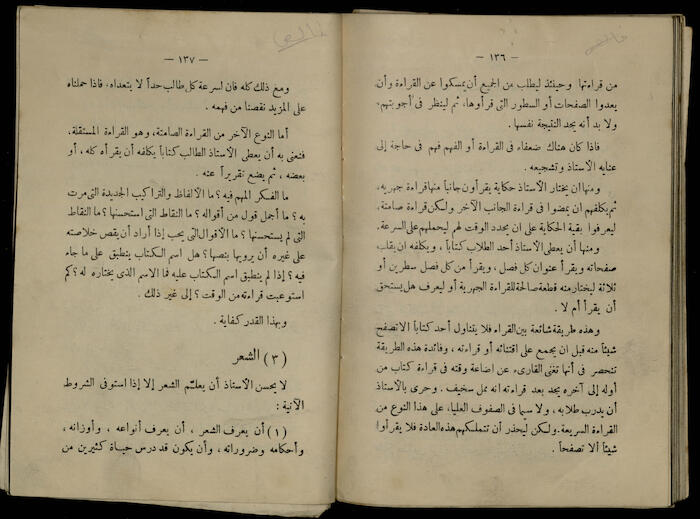 — ١٣٦ —
من قراءتها وحينئذ ليطلب من الجميع أن يمسكوا عن القراءة وأن
يعدوا الصفحات أو السطور التى قرأوها، ثم لينظر فى أجوبتهم،
ولا بد أنه يجد النتيجة نفسها.
فاذا كان هناك ضعفاء فى القراءة أو الفهم فهم فى حاجة إلى
عناية الأستاذ وتشجيعه.
ومنها أن يختار الأستاذ حكاية يقرأون جانباً منها قراءة جهرية،
ثم يكلفهم ان يمضوا فى قراءة الجانب الآخر ولكن قراءة صامتة،
ليعرفوا بقية الحكاية على ان يحدد الوقت لهم ليحملهم على السرعة.
ومنها أن يعطى الأستاذ أحد الطلاب كتاباً، ويكلفه ان يقلب
صفحاته ويقرأ عنوان كل فصل، ويقرأ من كل فصل سطرين أو
ثلاثة ليختار منه قطعة صالحة للقراءة الجهرية أو ليعرف هل يستحق
أن يقرأ أم لا.
وهذه طريقة شائعة بين القراء فلا يتناول أحد كتاباً الا تصفح
شيئاً منه قبل ان يجمع على اقتنائه أو قراءته، وفائدة هذه الطريقة
تنحصر فى أنها تغنى القارىء عن اضاعة وقته فى قراءة كتاب من
أوله إلى آخره يجد بعد قراءته انه ممل سخيف. وحرى بالأستاذ
أن يدرب طلابه، ولا سيما فى الصفوف العليا، على هذا النوع من
القراءة السريعة، ولكن ليحذر أن تتملكهم هذه العادة فلا يقرأوا
شيئاً ألا تصفحاً.
— ١٣٧ —
ومع ذلك كله فان لسرعة كل طالب حداً لا يتعداه، فاذا حملناه
على المزيد نقصنا من فهمه.
أما النوع الآخر من القراءة الصامتة، وهو القراءة المستقلة،
فنعنى به أن يعطى الأستاذ الطالب كتاباً يكلفه أن يقرأه كله، أو
بعضه، ثم يضع تقريراً عنه.
ما الفكر المهم فيه؟ ما الألفاظ والتراكيب الجديدة التى مرت
به؟ ما أجمل قول من أقواله؟ ما النقاط التى استحسنها؟ ما النقاط
التى لم يستحسنها؟ ما الأقوال التى يحب إذا أراد أن يقص خلاصته
على غيره أن يرويها بنصها؟ هل اسم الكتاب ينطبق على ما جاء
فيه؟ إذا لم ينطبق اسم الكتاب عليه فما الاسم الذى يختاره له؟ كم
استوعبت قراءته من الوقت؟ إلى غير ذلك.
وبهذا القدر كفاية.
(٣) الشعر
لا يحسن الأستاذ أن يعلّم الشعر إلا إذا استوفى الشروط
الآتية:
(١) أن يعرف الشعر، أن يعرف أنواعه، وأوزانه،
وأحكامه وضروراته، وأن يكون قد درس حياة كثيرين من